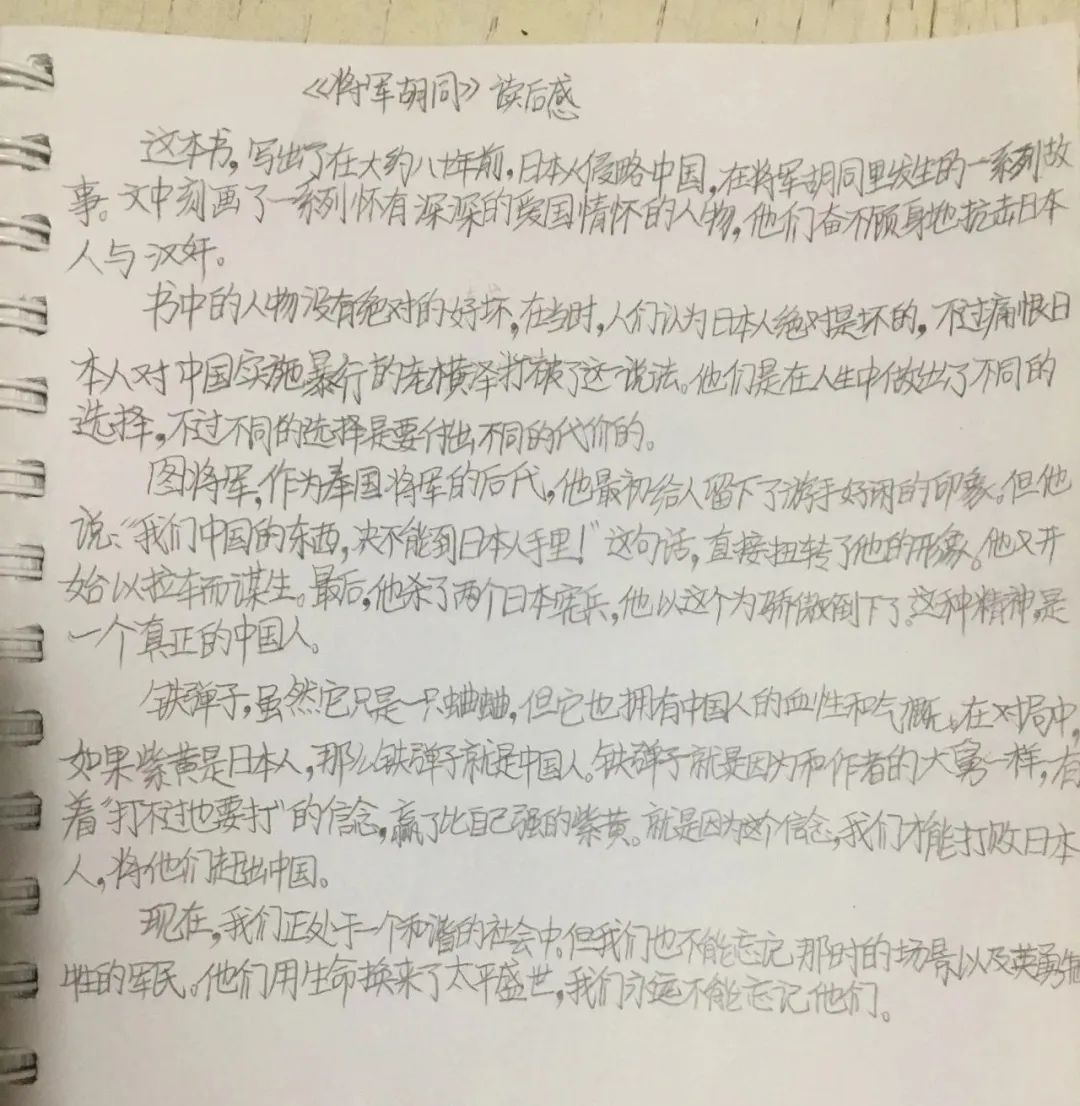 《将军胡同》读后感
这本书，写出了在大约八十年前，日本人侵略中国，在将军胡同里发生的一系列故
事。文中刻画了一系列怀有深深的爱国情怀的人物，他们奋不顾身地抗击日本
人与汉奸。
书中的人物没有绝对的好坏，在当时，人们认为日本人绝对是坏的，不过痛恨日
本人对中国实施暴行的龙横泽打破了这一说法。他们是在人生中做出了不同的
选择，不过不同的选择是要付出不同的代价的。
图将军，作为奉国将军的后代，他最初给人留下了游手好闲的印象。但他
说：“我们中国的东西，决不能到日本人手里！”这句话，直接扭转了他的形象。他又开
始以拉车而谋生。最后，他杀了两个日本宪兵，他以这个为骄傲倒下了。这种精神，是
一个真正的中国人。
铁弹子，虽然它只是一只蛐蛐，但它也拥有中国人的血性和气概。在对局中，
如果紫黄是日本人，那么铁弹子就是中国人。铁弹子就是因为和作者的大舅一样，有
着“打不过也要打”的信念，赢了比自己强的紫黄。就是因为这个信念，我们才能打败日本
人，将他们赶出中国。
现在，我们正处于一个和谐的社会中。但我们也不能忘记那时的场景以及英勇牺
牲的军民。他们用生命换来了太平盛世，我们永远不能忘记他们。